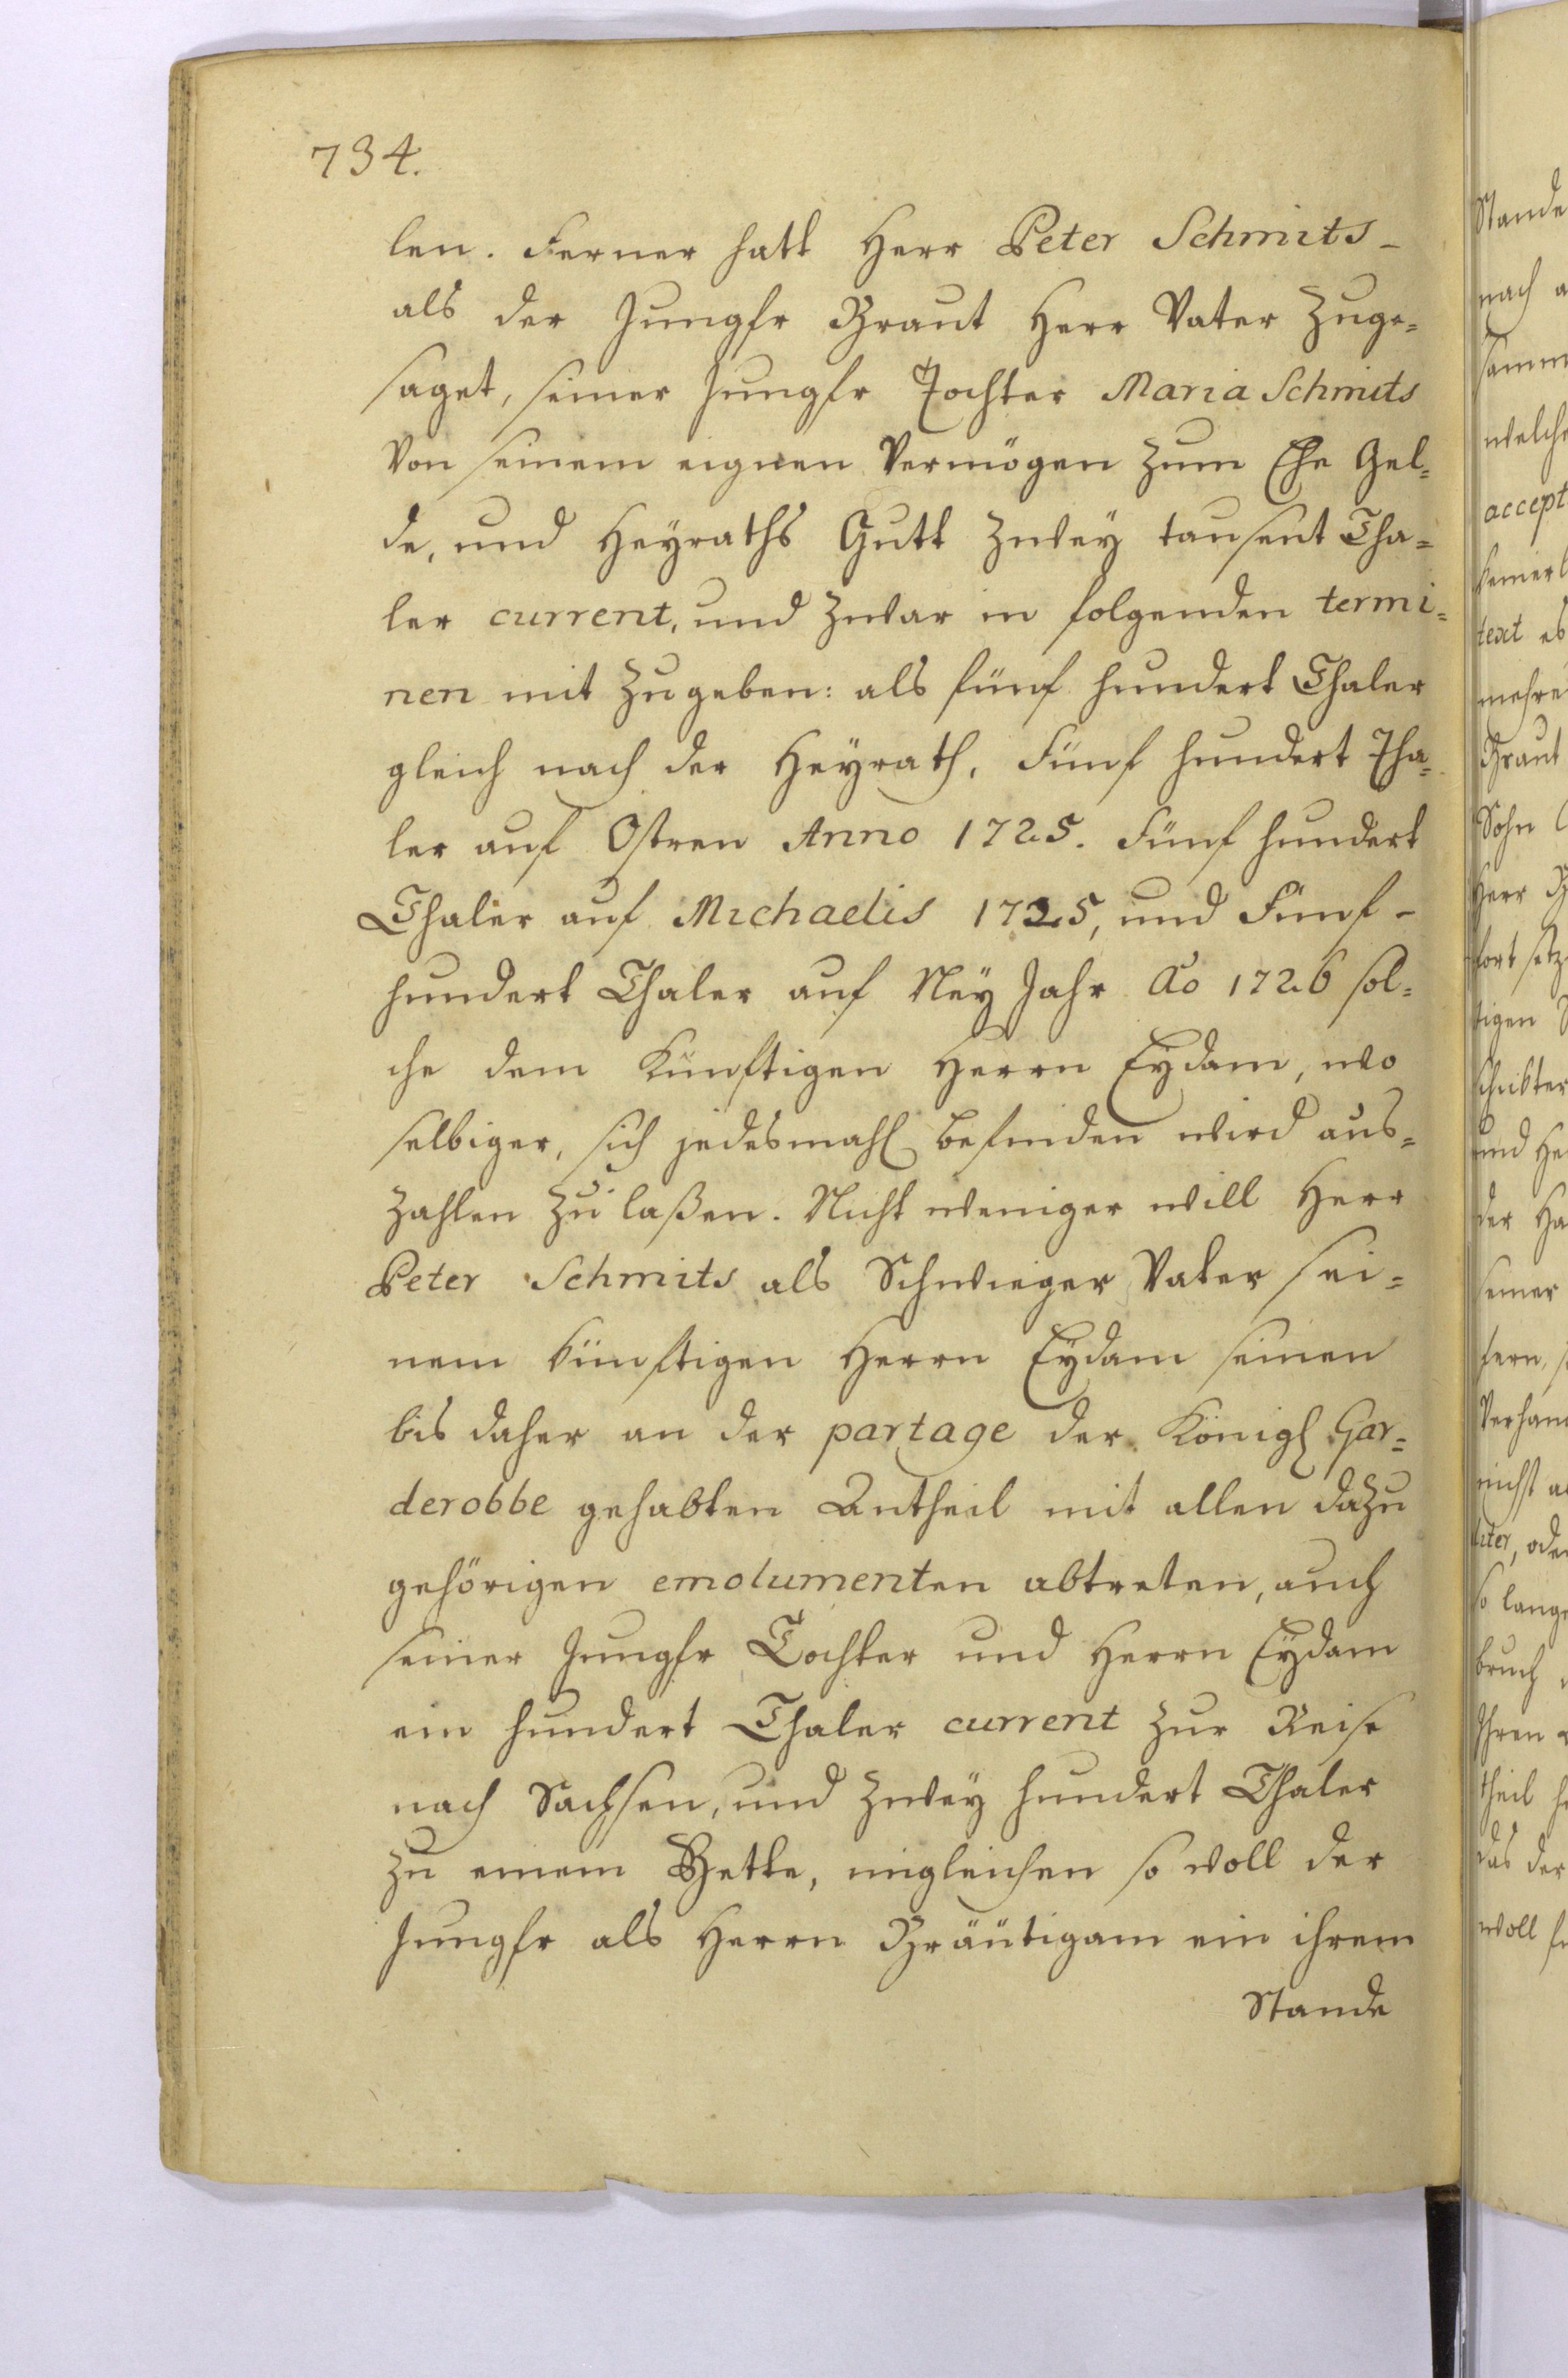 734.
len. Ferner hatt Herr Peter Schmits-
als der Jungfr Braut Herr Vater zuge=
saget, seiner Jungfr Tochter Maria Schmits
von seinem eignen Vermögen zum Ehe Gel=
de, und Heyraths Gutt zwey tausent Tha=
ler current, und zwar in folgenden termi=
nen mit zugeben: als fünf hundert Thaler
gleich nach der Heyrath, Fünf hundert Tha=
ler auf Ostren Anno 1725. Fünf hundert
Thaler auf Michaelis 1725, und Fünf-
hundert Thaler auf Ney Jahr Ao 1726 sol=
che dem Künftigen Herrn Eydam, wo
selbiger, sich jedesmahl befinden wird aus=
zahlen zu laßen. Nicht weniger will Herr
Peter Schmits als Schwieger Vater sei=
nem künftigen Herrn Eydam seinen
bis daher an der partage der Königl Gar=
derobbe gehabten Antheil mit allen dazu
gehörigen emolumenten abtreten, auch
seiner Jungfr Tochter und Herrn Eydam
ein hundert Thaler current zur Reise
nach Sachsen, und zwey hundert Thaler
zu einem Bette, ingleichen so woll der
Jungfr als Herrn Bräutigam ein ihrem
Stande
Stande
nach a
samm
welche
accept
keinerl
text es
mehre
Braut
Sohn
Herr B
fort setz
tigen
und He
der Ha
seiner
fern,
Verhan
nicht a
ter, oder
so lange
bruch
Ihren
theil h
das der
woll